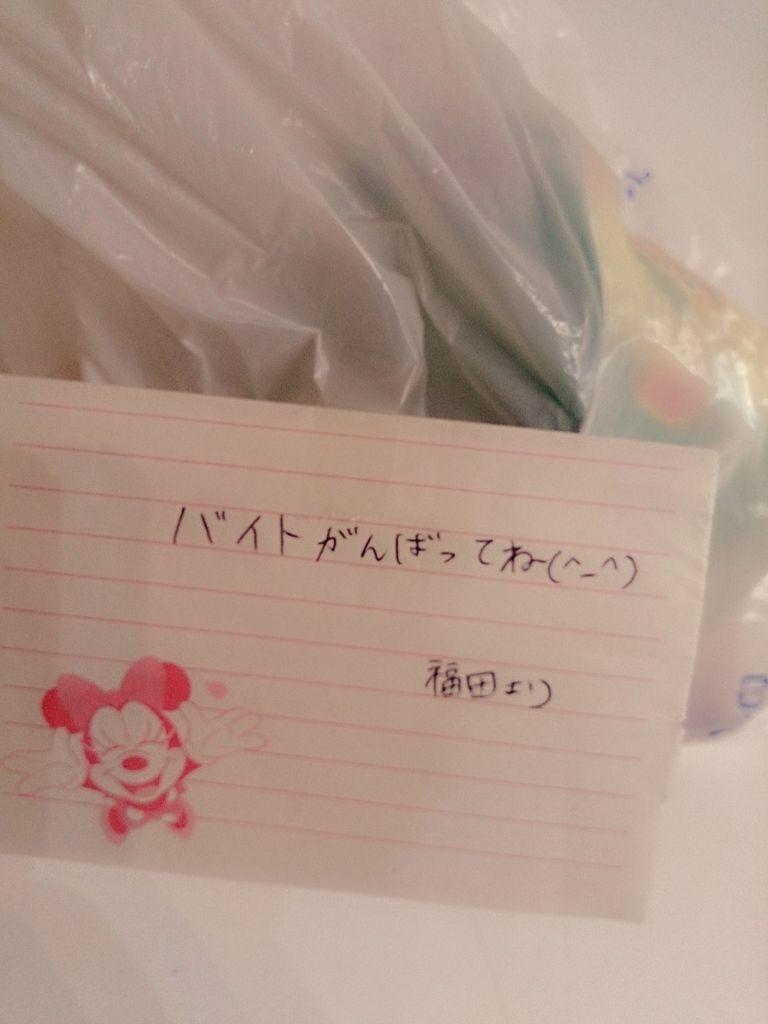 バイトがんばってね(^-^)
福田より